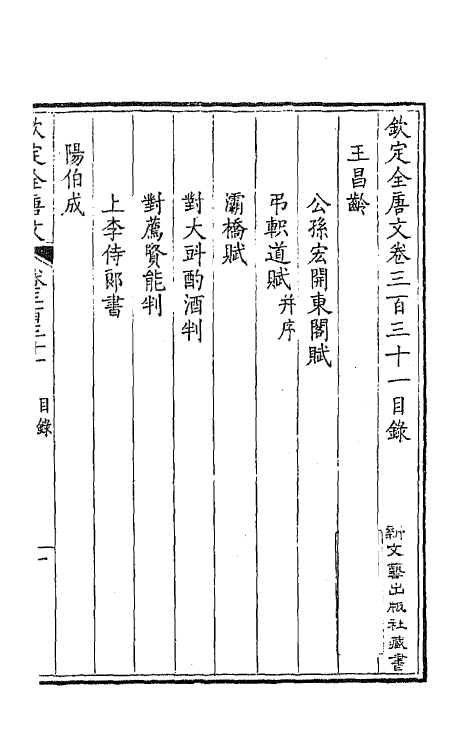 欽定全唐文卷三百三十一目錄
新文藝出版社藏書
王昌齡
公孫宏開東閣賦
弔軹道賦并序
灞橋賦
對大斟酌酒判
對薦賢能判
上李侍郎書
陽伯成
欽定全唐文 卷三百三十一 目錄 一